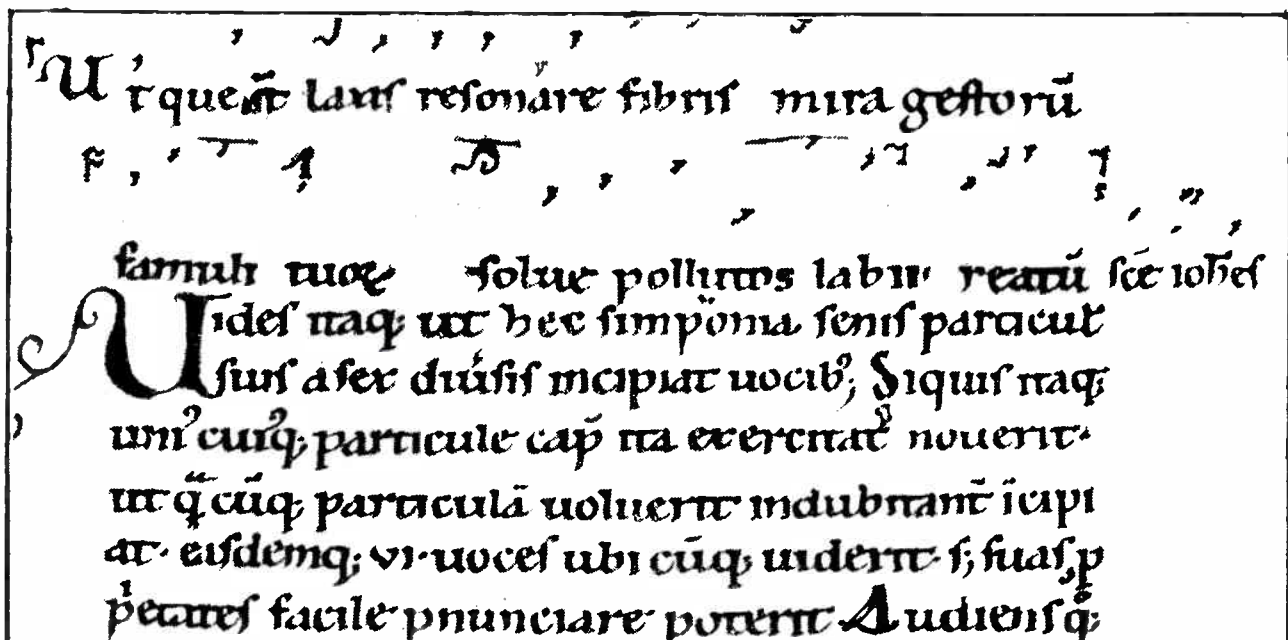 Ut queñt laxis resonare fibris mira gestorū
famuli tuoꝝ solue polluti labii reatū sc̄e ioh̄es
Uides itaq; ut hec simpḣonia senis particul̄
suis a sex diũsis incipiat uocib᷒; Siquis itaq;
uni᷒cui᷒q; particule cap̄ ita exercitat᷑ nouerit.
ut q̄cūq; particulā uoluerit indubitant̄ īcipi
at. eisdemq; vi. uoces ubi cūq; uiderit. s; suas ꝓ
p̍etates facile pnunciare poterit Audiens q̊;